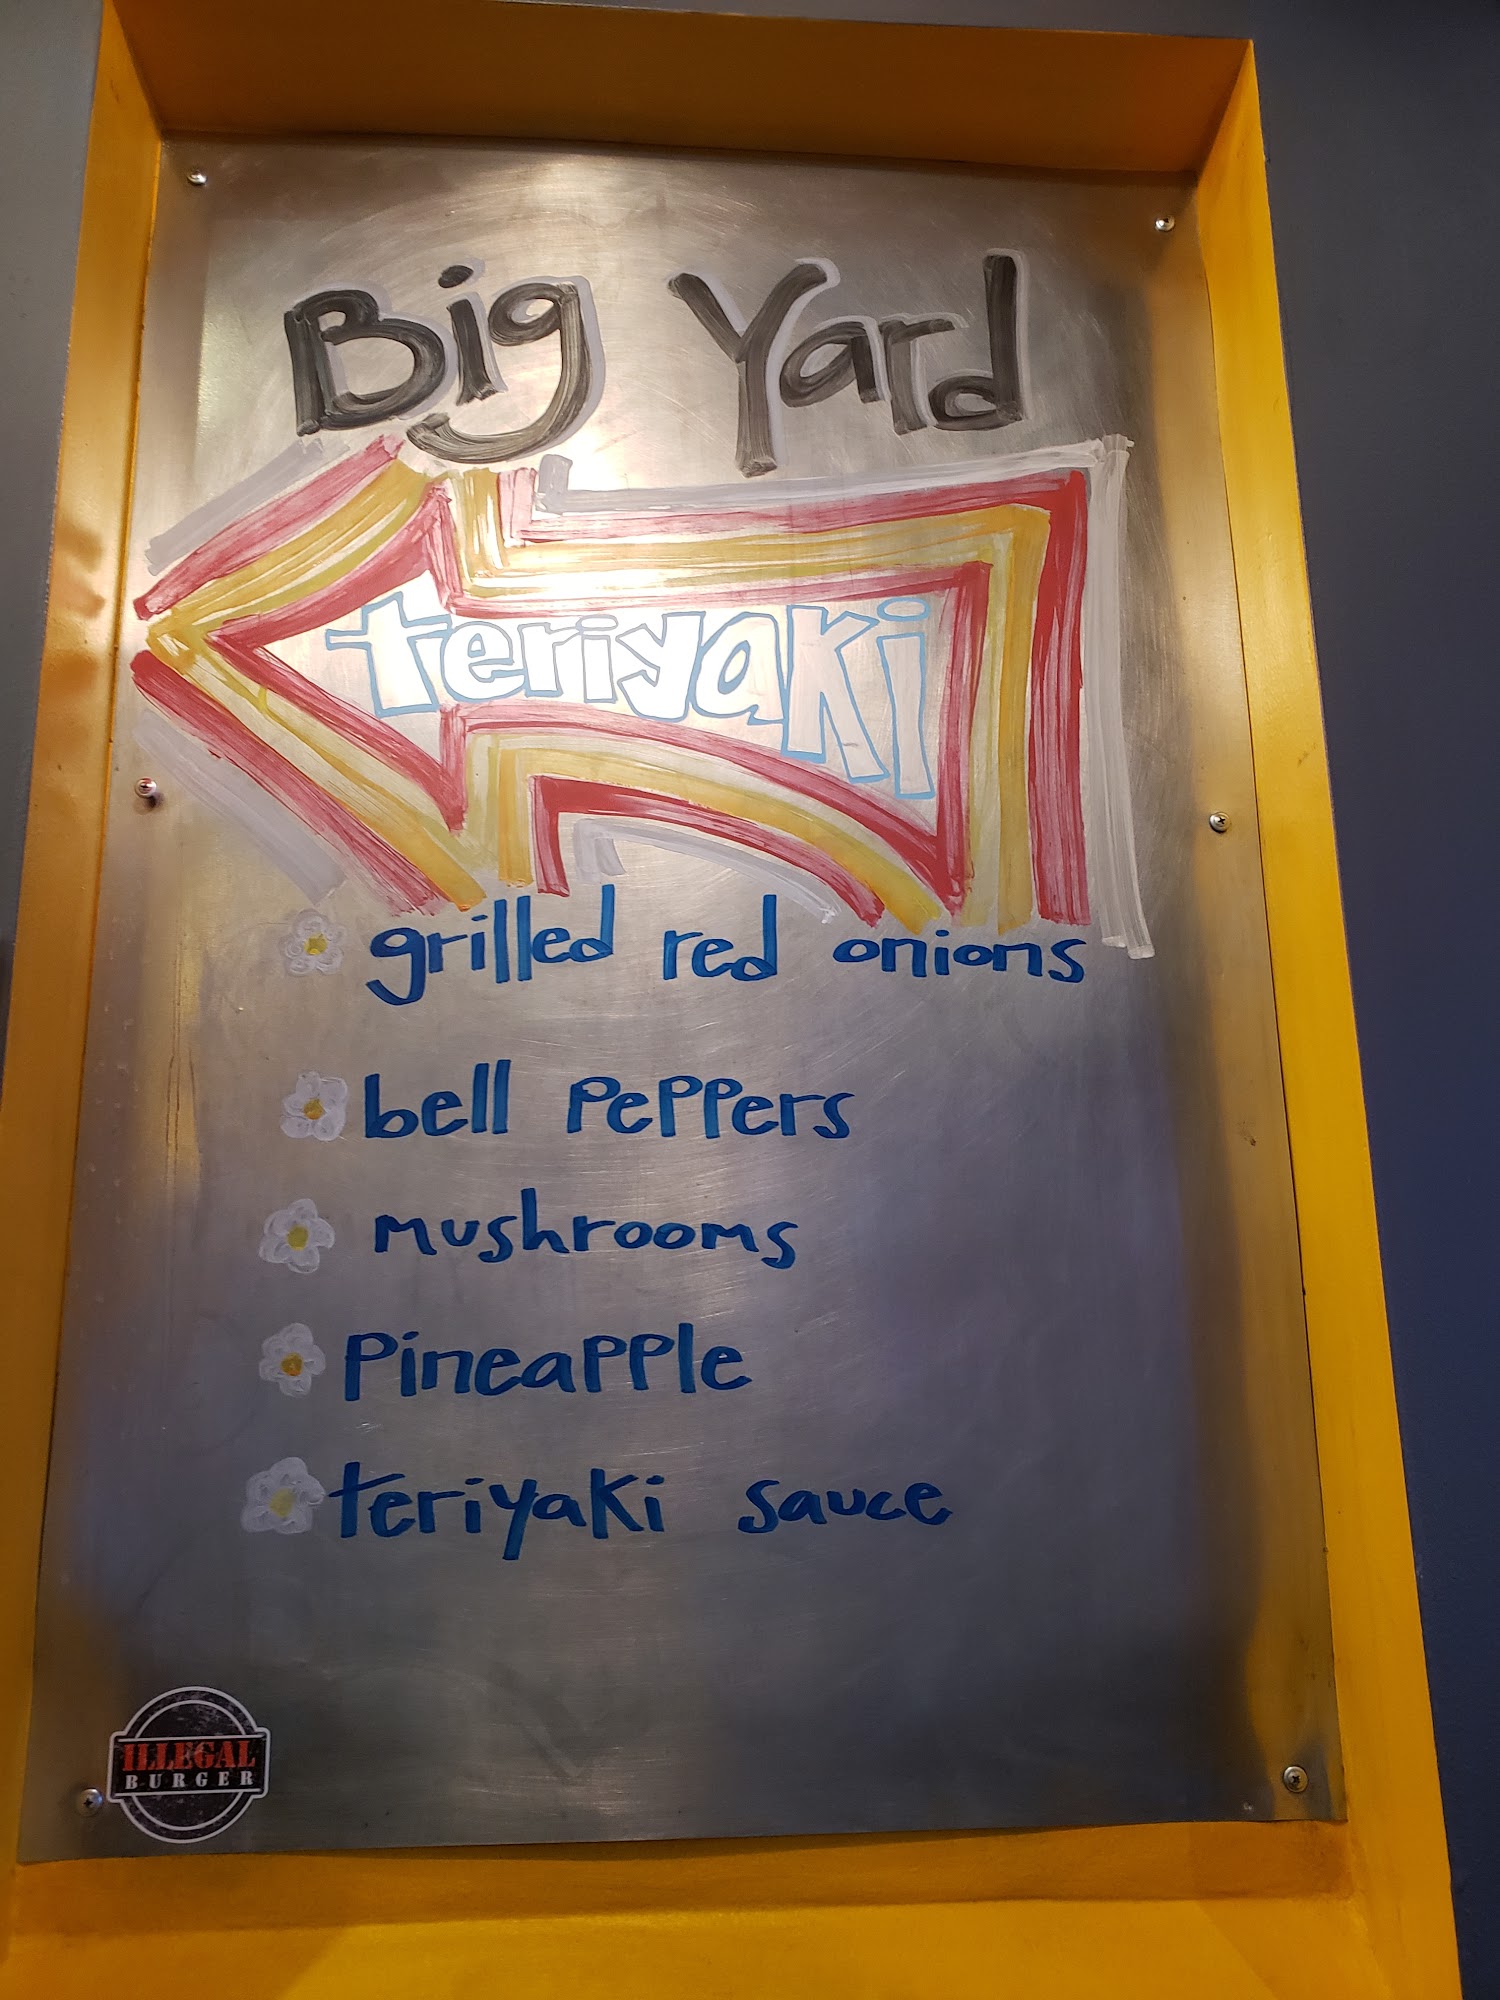 Big Yard
teriyaki
grilled red onions
bell peppers
mushrooms
pineapple
teriyaki sauce
ILLEGAL
BURGER